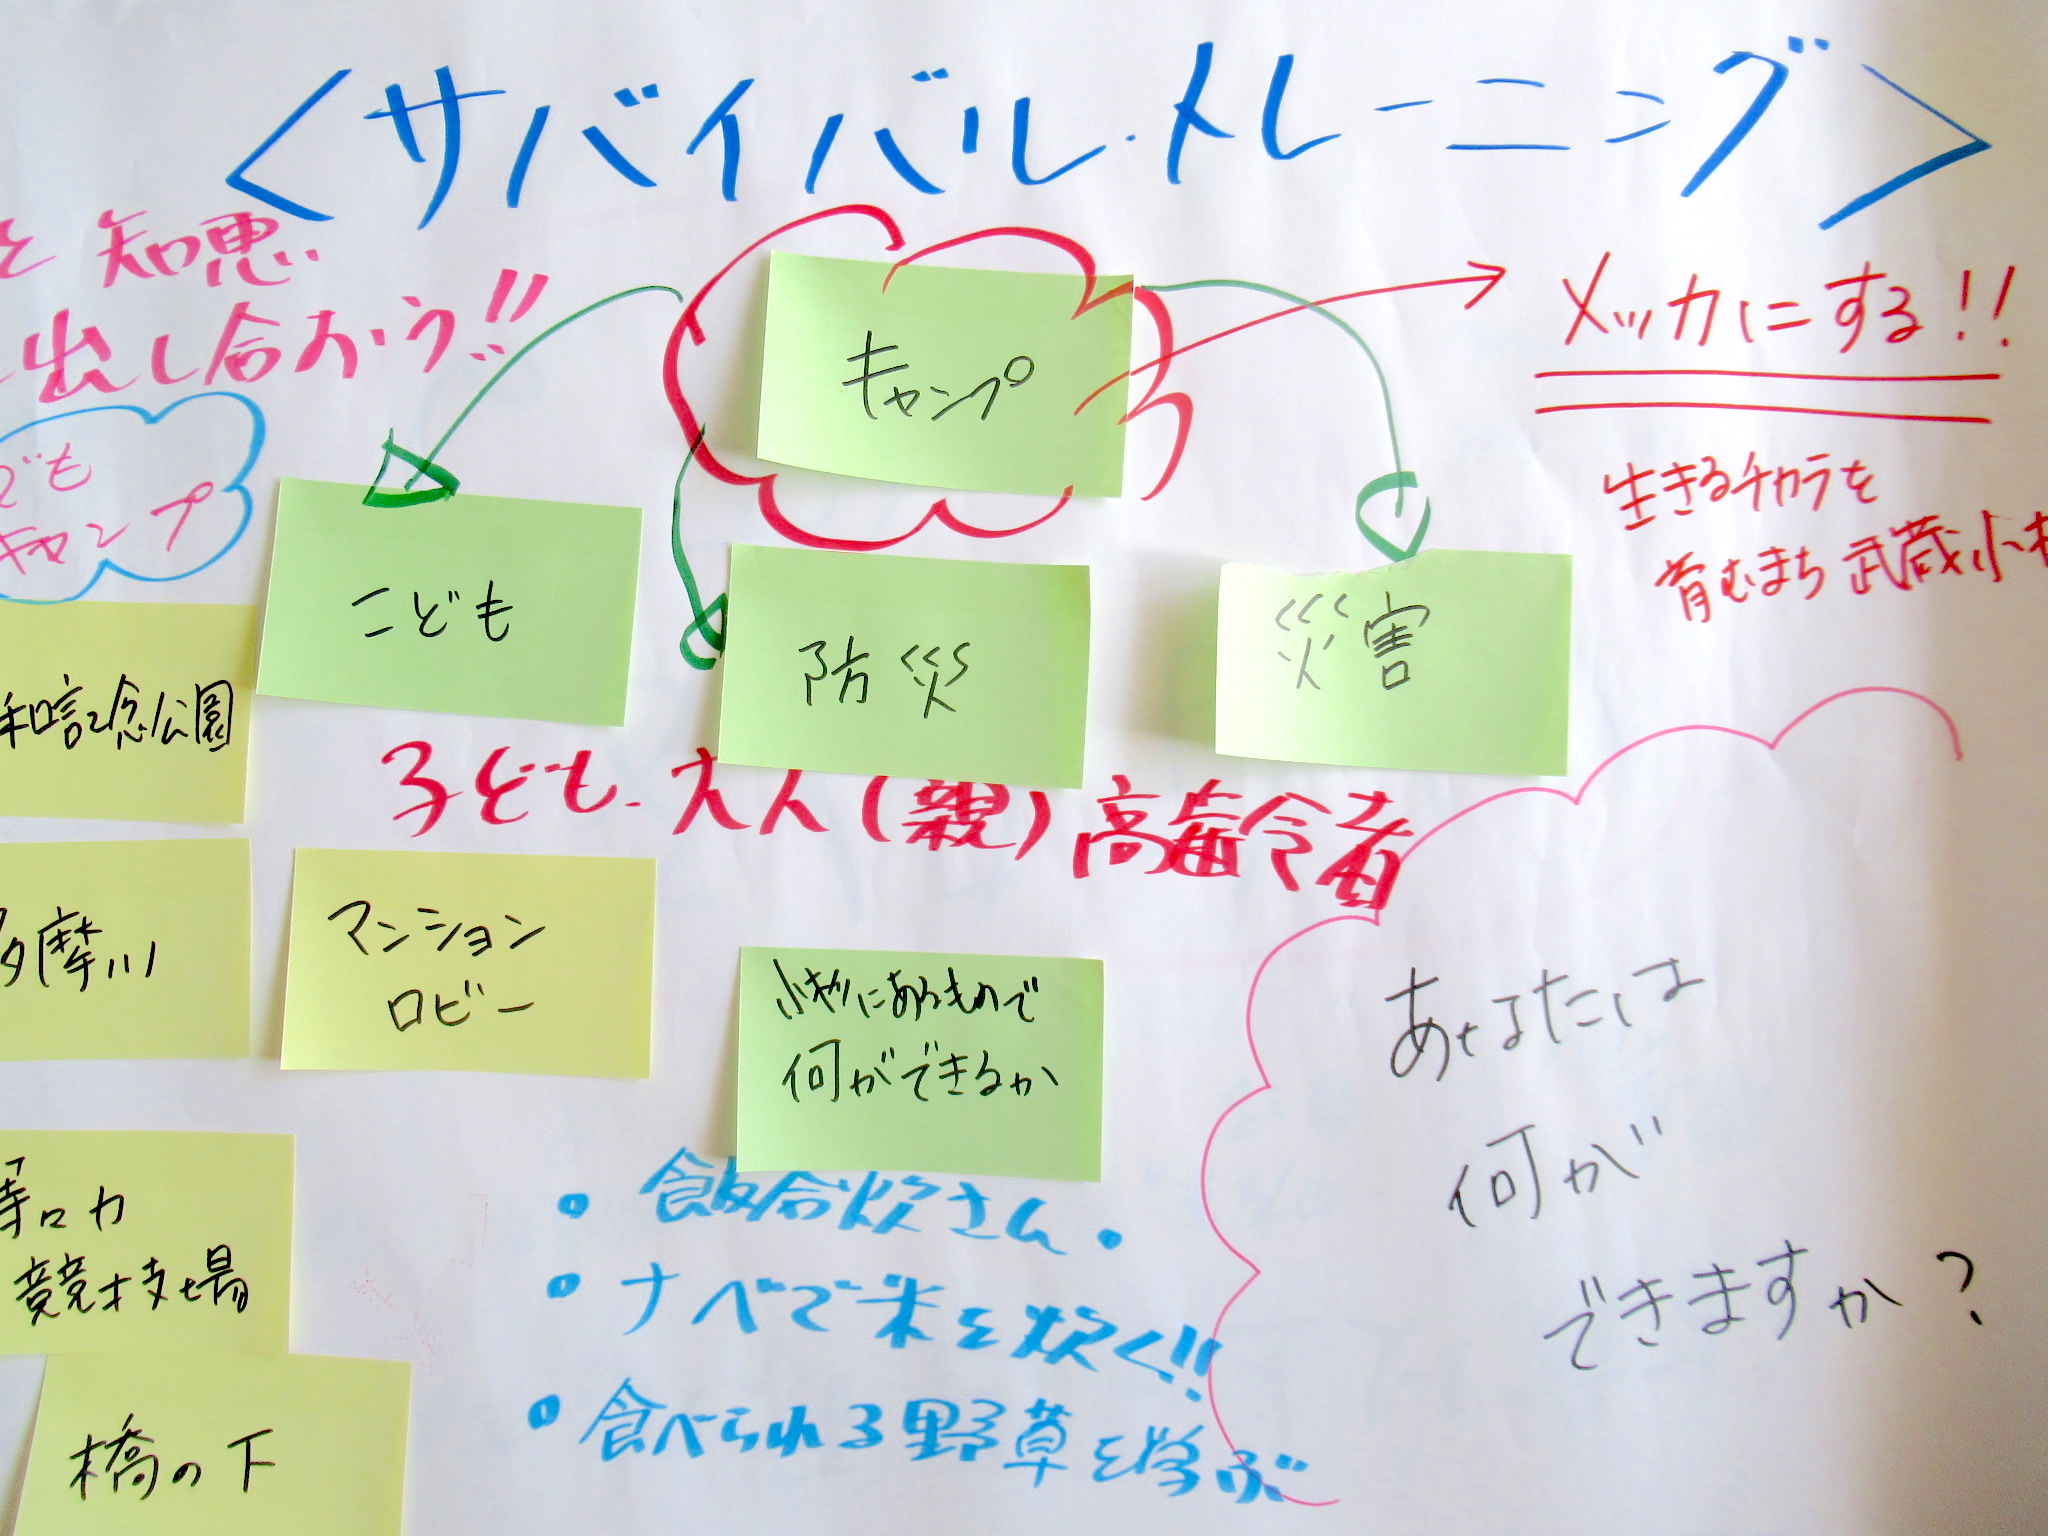 <サバイバル・トレーニング>
を 知恵
出し合おう!!
でも
キャンプ
キャンプ
メッカにする!!
生きるチカラを
育むまち 武蔵小杉
こども
防災
災害
和記念公園
子ども・大人(親)高齢者
多摩川
マンション
ロビー
小杉にあるもので
何ができるか
あなたは
何が
できますか?
等々力
競技場
橋の下
・飯ごう炊さん・
・ナベで米を炊く!!
・食べられる野草を学ぶ